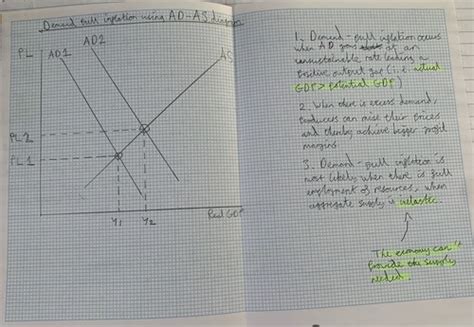 Demand pull inflation using AD-AS diagram
PL
AD1
AD2
AS
PL2
PL1
Y1
Y2
Real GDP
1. Demand-pull inflation occurs
when AD grows at an
unsustainable rate leading a
positive output gap (i.e. actual
GDP > potential GDP)
2. When there is excess demand,
producers can raise their prices
and thereby achieve bigger profit
margins
3. Demand-pull inflation is
most likely when there is full
employment of resources, when
aggregate supply is inelastic.
The economy can't
provide the supply
needed.